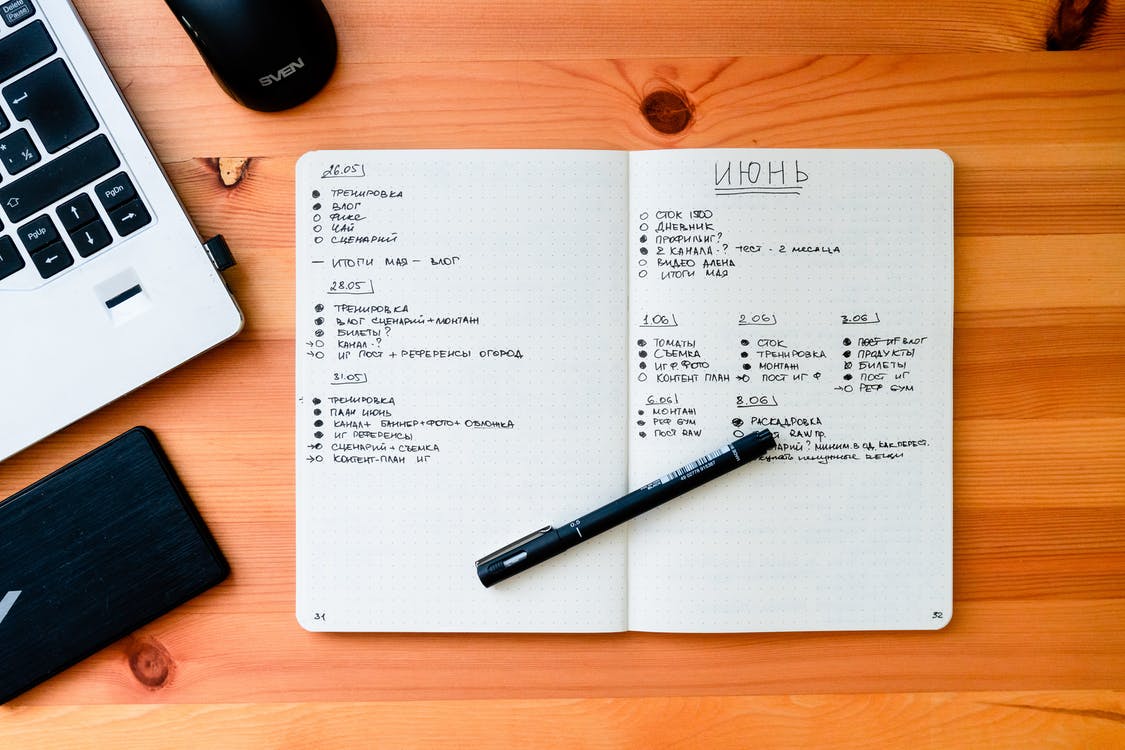 Delete
Pause
½
PgUp
PgDn
SVEN
26.05
ТРЕНИРОВКА
ВЛОГ
ФИКС
ЧАЙ
СЦЕНАРИЙ
— ИТОГИ МАЯ — ВЛОГ
28.05
ТРЕНИРОВКА
ВЛОГ СЦЕНАРИЙ + МОНТАЖ
БИЛЕТЫ?
КАНАЛ ·?
ИГ ПОСТ + РЕФЕРЕНСЫ ОГОРОД
31.05
ТРЕНИРОВКА
ПЛАН ИЮНЬ
КАНАЛ + БАННЕР + ФОТО + ОБЛОЖКА
ИГ РЕФЕРЕНСЫ
СЦЕНАРИЙ + СЪЕМКА
КОНТЕНТ-ПЛАН ИГ
31
ИЮНЬ
СТОК 1500
ДНЕВНИК
ПРОФИЛЬ ИГ?
2 КАНАЛА·? ТЕСТ - 2 МЕСАЦА
ВИДЕО АЛЕНА
ИТОГИ МАЯ
1.06
ТОМАТЫ
СЪЕМКА
ИГ Ф ФОТО
КОНТЕНТ ПЛАН
2.06
СТОК
ТРЕНИРОВКА
МОНТАЖ
ПОСТ ИГ Ф
3.06
ПОСТ ИГ ВЛОГ
ПРОДУКТЫ
БИЛЕТЫ
ПОСТ ИГ
РЕФ GYM
6.06
МОНТАЖ
РЕФ GYM
ПОСТ RAW
8.06
РАСКАДРОВКА
RAW ПР.
МИНИМ. В ОД. КАК ПЕРЕСТ.
НЕНУЖНЫЕ ВЕЩИ
32
0.5